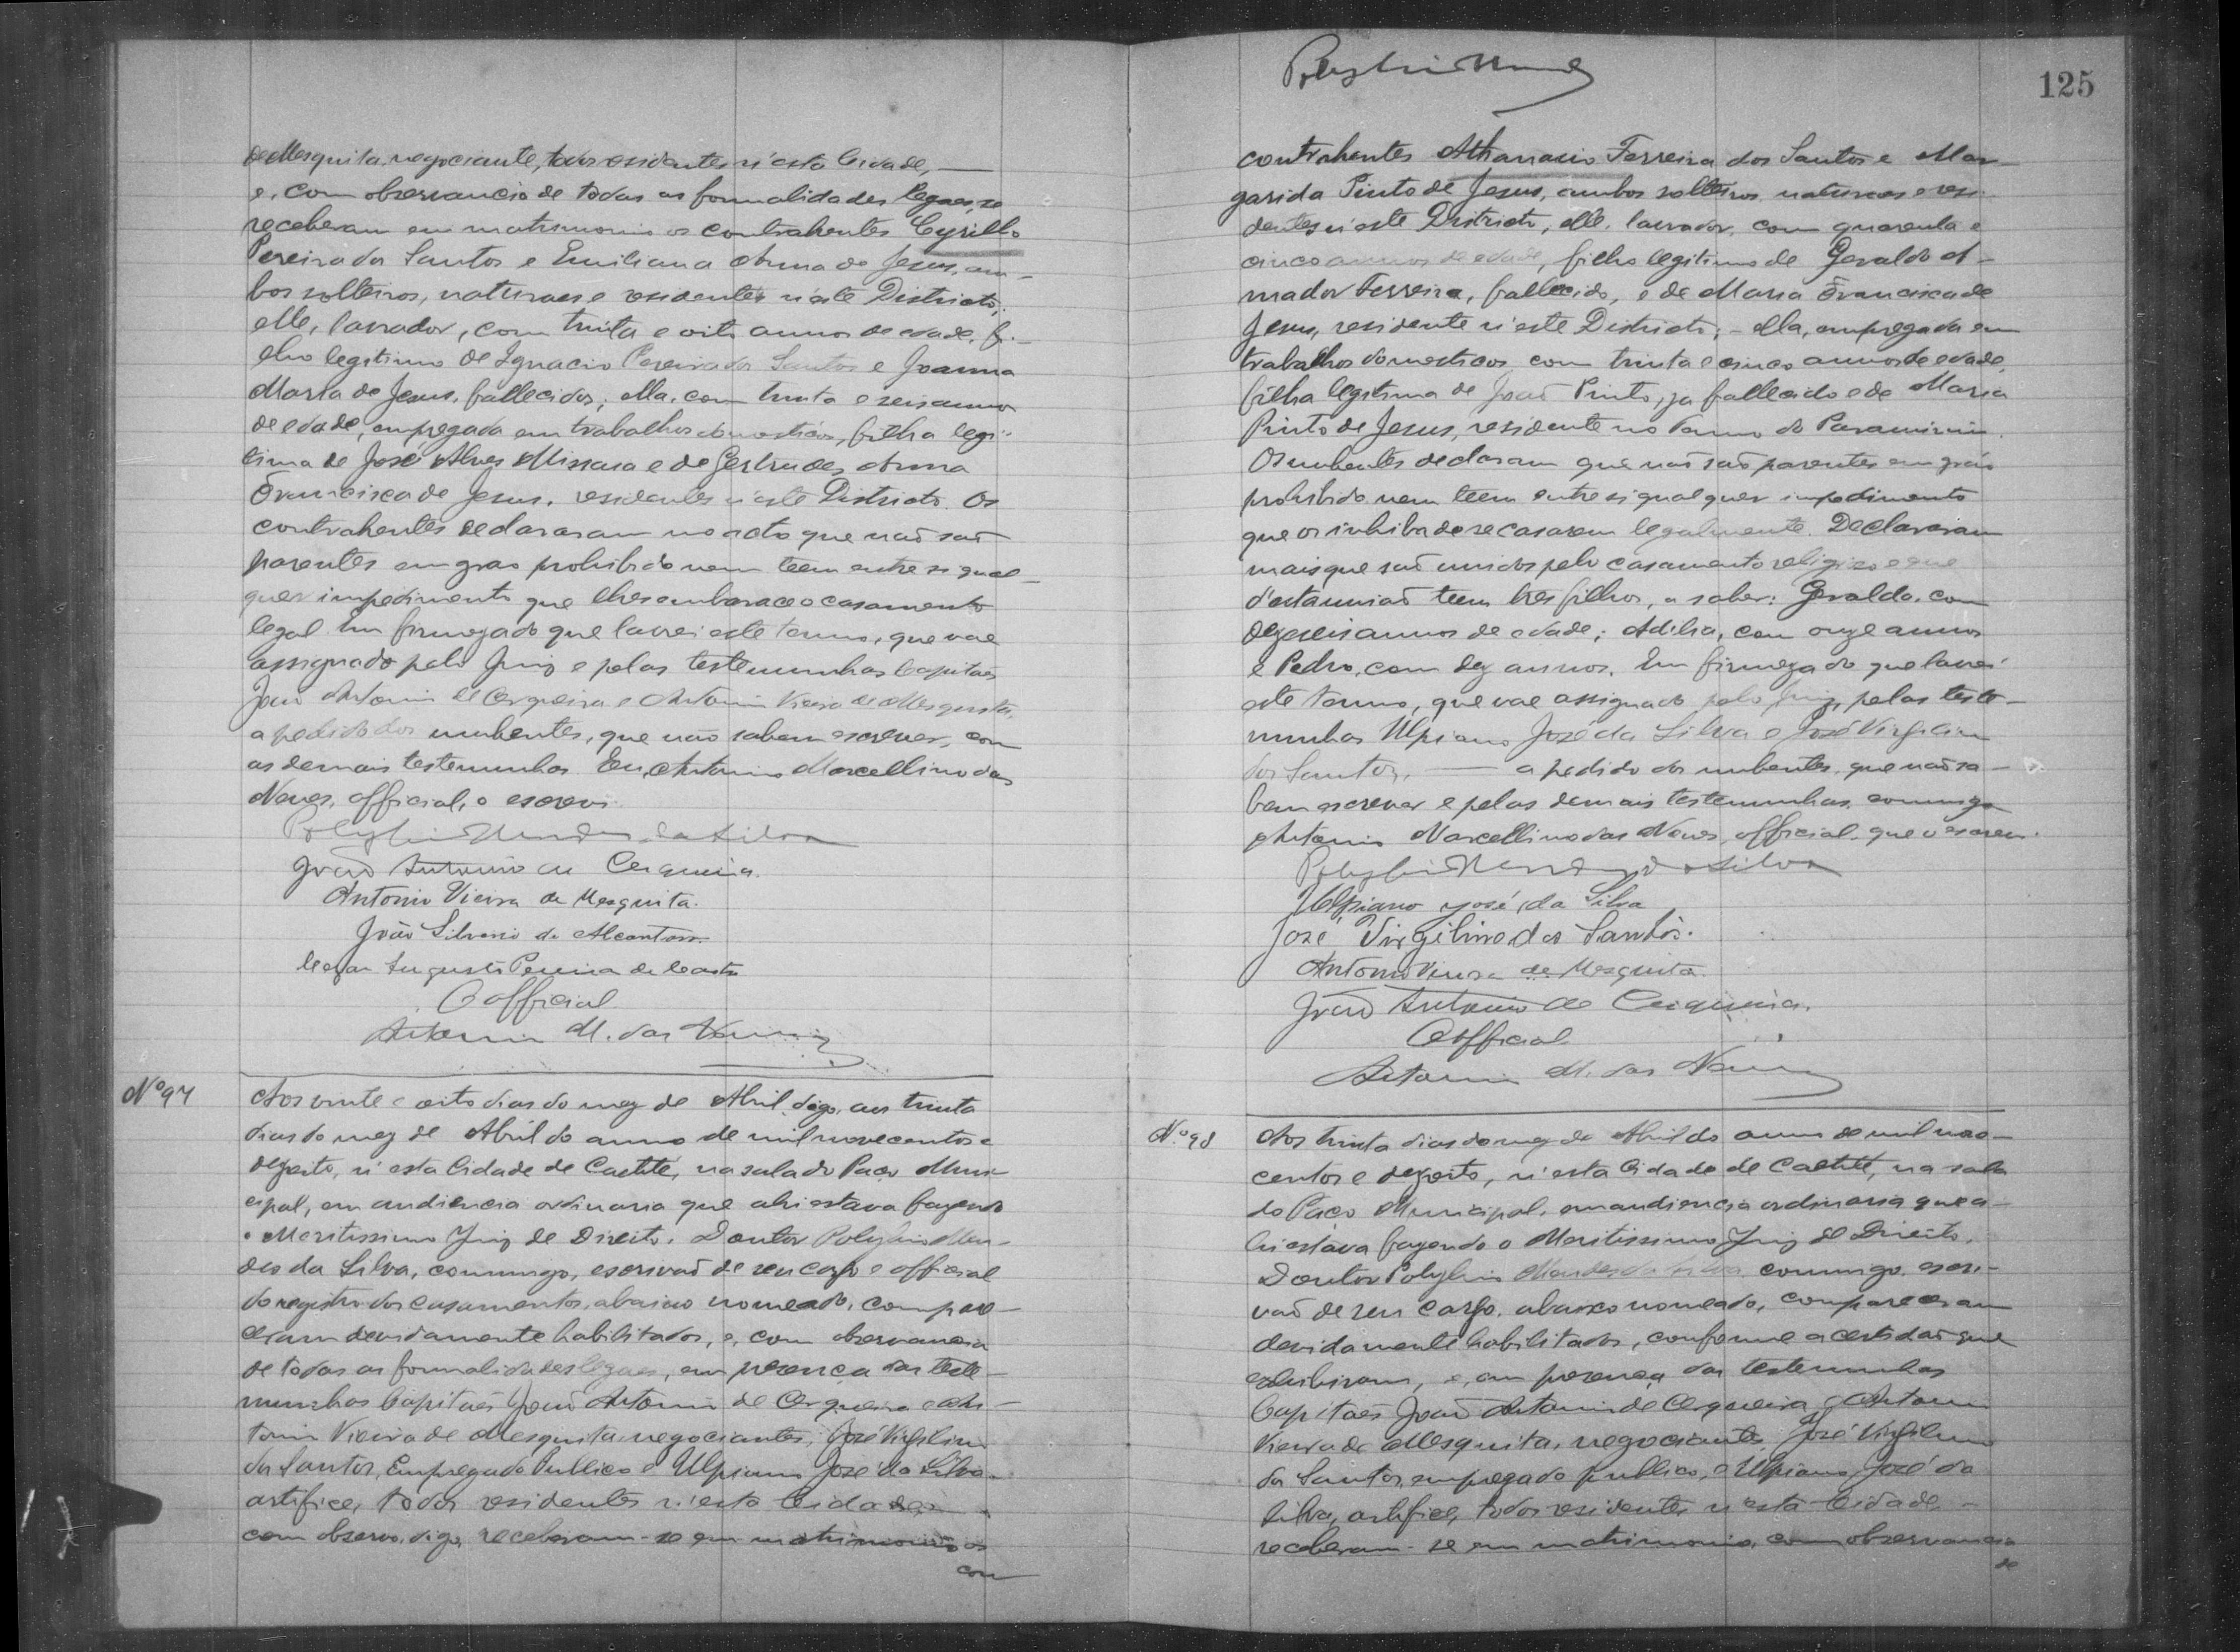 de Mesquita, negociante, todos residentes n'esta Cidade,
e, com observancia de todas as formalidades legaes, se
receberam em matrimonio os contrahentes Cyrillo
Pereira dos Santos e Emiliana Anna de Jesus, am-
bos solteiros, naturaes e residentes n'este Districto;
elle, lavrador, com trinta e oito annos de edade, fi-
lho legitimo de Ignacio Pereira dos Santos e Joanna
Maria de Jesus, fallecidos; ella, com trinta e seis annos
de edade, empregada em trabalhos domesticos, filha legi-
tima de José Alves e de Gertrudes Anna
Francisca de Jesus, residentes n'este Districto. Os
contrahentes declararam no acto que não são
parentes em grao prohibido nem teem entre si qual-
quer impedimento que lhes embarace o casamento
legal. Em firmeza do que lavrei este termo, que vae
assignado pelo Juiz e pelas testemunhas Capitães
João Antonio de Cerqueira e Antonio Vieira de Mesquita,
a pedido dos nubentes, que não sabem escrever, com
as demais testemunhas. Eu, Antonio Marcellino das
Neves, official, o escrevi.
Polybio Mendes da Silva
João Antonio de Cerqueira.
Antonio Vieira de Mesquita.
João Silverio de Alcantara
Cezar Augusto Pereira de Castro
O official
Antonio M. das Neves
Nº 97
Aos vinte e oito dias do mez de Abril, digo, aos trinta
dias do mez de Abril do anno de mil novecentos e
dezoito, n'esta Cidade de Caetité, na sala do Paço Muni-
cipal, em audiencia ordinaria que ahi estava fazendo
o Meritissimo Juiz de Direito, Doutor Polybio Men-
des da Silva, commigo, escrivão de seu cargo e official
do registro dos casamentos, abaixo nomeado, compare-
ceram devidamente habilitados, e, com observancia
de todas as formalidades legaes, em presença das teste-
munhas Capitães João Antonio de Cerqueira e An-
tonio Vieira de Mesquita, negociantes, José Virgilino
dos Santos, Empregado Publico e Ulpiano José da Silva,
artifice, todos residentes n'esta Cidade,
com observa, digo, receberam-se em matrimonio os
con
Polybio Mendes
125
contrahentes Athanasio Ferreira dos Santos e Mar-
garida Pinto de Jesus, ambos solteiros, naturaes e resi-
dentes n'este Districto, elle, lavrador, com quarenta e
cinco annos de edade, filho legitimo de Geraldo A-
mador Ferreira, fallecido, e de Maria Francisca de
Jesus, residente n'este Districto; - ella, empregada em
trabalhos domesticos, com trinta e cinco annos de edade,
filha legitima de João Pinto, ja fallecido e de Maria
Pinto de Jesus, residente no Termo do Paramirim.
Os nubentes declaram que não são parentes em gráo
prohibido nem teem entre si qualquer impedimento
que os inhiba de se casarem legalmente. Declararam
mais que são unidos pelo casamento religioso e que
d'esta união teem tres filhos, a saber: Geraldo, com
dezeseis annos de edade; Adilia, com onze annos
e Pedro, com dez annos. Em firmeza do que lavrei
este termo, que vae assignado pelo Juiz, pelas teste-
munhas Ulpiano José da Silva e José Virgilino
dos Santos, a pedido dos nubentes, que não sa-
bem escrever e pelas demais testemunhas, commigo
Antonio Marcellino das Neves, official, que o escrevi.
Polybio Mendes da Silva
Ulpiano José da Silva
José Virgilino dos Santos.
Antonio Vieira de Mesquita.
João Antonio de Cerqueira.
O official
Antonio M. das Neves
N.º 98
Aos trinta dias do mez de Abril do anno de mil nove-
centos e dezoito, n'esta Cidade de Caetité, na sala
do Paço Municipal, em audiencia ordinaria que a-
hi estava fazendo o Meritissimo Juiz de Direito,
Doutor Polybio Mendes da Silva, commigo, escri-
vão de seu cargo, abaixo nomeado, compareceram
devidamente habilitados, conforme a certidão que
exhibiram, e, em presença das testemunhas
Capitães João Antonio de Cerqueira e Antonio
Vieira de Mesquita, negociantes, José Virgilino
dos Santos, empregado publico, e Ulpiano José da
Silva, artifice, todos residentes n'esta Cidade,
receberam-se em matrimonio, com observancia
de